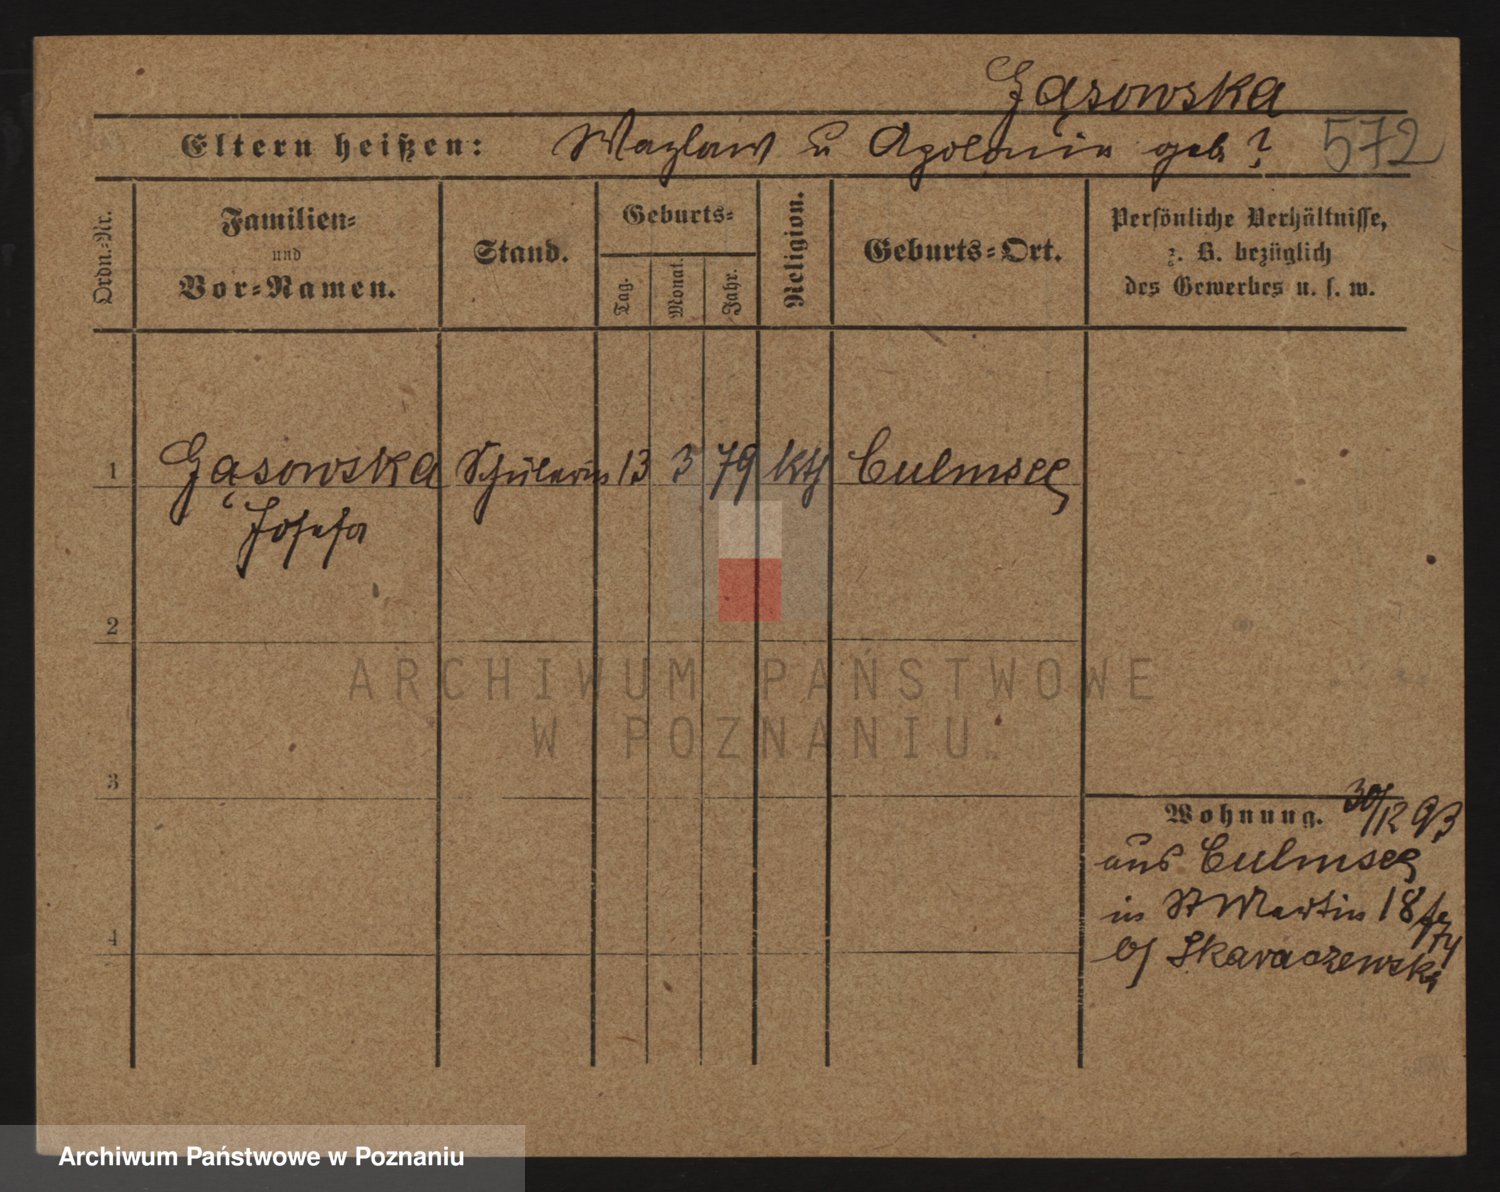 Gąsowska
Eltern heißen: Wazlaw u Apolonia geb ? 572
Ordn.-Nr.
Familien-
und
Vor-Namen.
Stand.
Geburts-
Tag.
Monat.
Jahr.
Religion.
Geburts-Ort.
Persönliche Verhältnisse,
z. B. bezüglich
des Gewerbes u. s. w.
1 Gąsowska Schülerin 13 3 79 kth Culmsee
Josefa
2
3
4
Wohnung. 30/12 93
aus Culmsee
in St Martin 18
bj Skaraczewski
ARCHIWUM PAŃSTWOWE
W POZNANIU
Archiwum Państwowe w Poznaniu